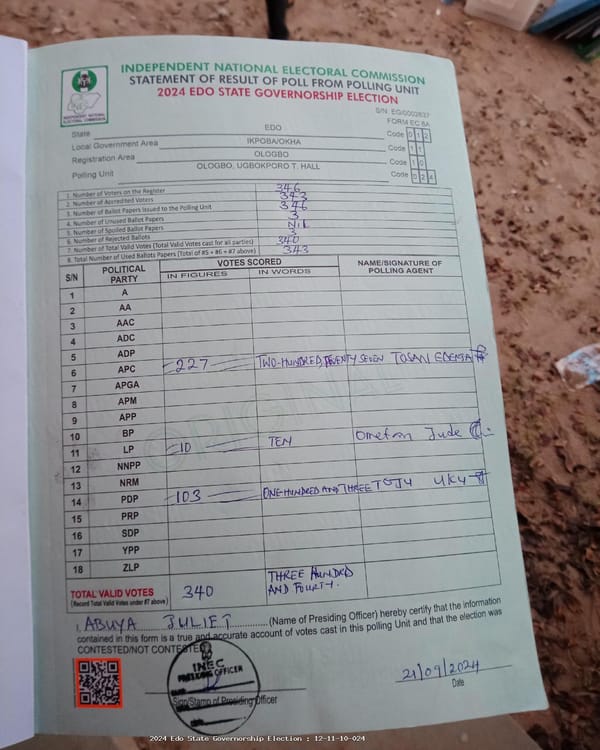 INDEPENDENT NATIONAL ELECTORAL COMMISSION
STATEMENT OF RESULT OF POLL FROM POLLING UNIT
2024 EDO STATE GOVERNORSHIP ELECTION
S/N: EG/0002837
FORM EC 8A
State EDO Code 0 1 2
Local Government Area IKPOBA/OKHA Code 1 1
Registration Area OLOGBO Code 1 0
Polling Unit OLOGBO, UGBOKPORO T. HALL Code 0 2 4
1. Number of Voters on the Register 346
2. Number of Accredited Voters 343
3. Number of Ballot Papers Issued to the Polling Unit 346
4. Number of Unused Ballot Papers 3
5. Number of Spoiled Ballot Papers NIL
6. Number of Rejected Ballots 3
7. Number of Total Valid Votes (Total Valid Votes cast for all parties) 340
8. Total Number of Used Ballots Papers (Total of #5 + #6 + #7 above) 343
S/N POLITICAL PARTY VOTES SCORED NAME/SIGNATURE OF POLLING AGENT
IN FIGURES IN WORDS
1 A
2 AA
3 AAC
4 ADC
5 ADP
6 APC 227 TWO-HUNDRED, TWENTY SEVEN TOSAN
7 APGA
8 APM
9 APP
10 BP
11 LP 10 TEN Jude
12 NNPP
13 NRM
14 PDP 103 ONE-HUNDRED AND THREE
15 PRP
16 SDP
17 YPP
18 ZLP
TOTAL VALID VOTES 340 THREE HUNDRED AND FOURTY.
(Record Total Valid Votes under #7 above)
I, ABUYA JULIET (Name of Presiding Officer) hereby certify that the information
contained in this form is a true and accurate account of votes cast in this polling Unit and that the election was
CONTESTED/NOT CONTESTED
INEC
PRESIDING OFFICER
Sign/Stamp of Presiding Officer
21/09/2024
Date
2024 Edo State Governorship Election : 12-11-10-024